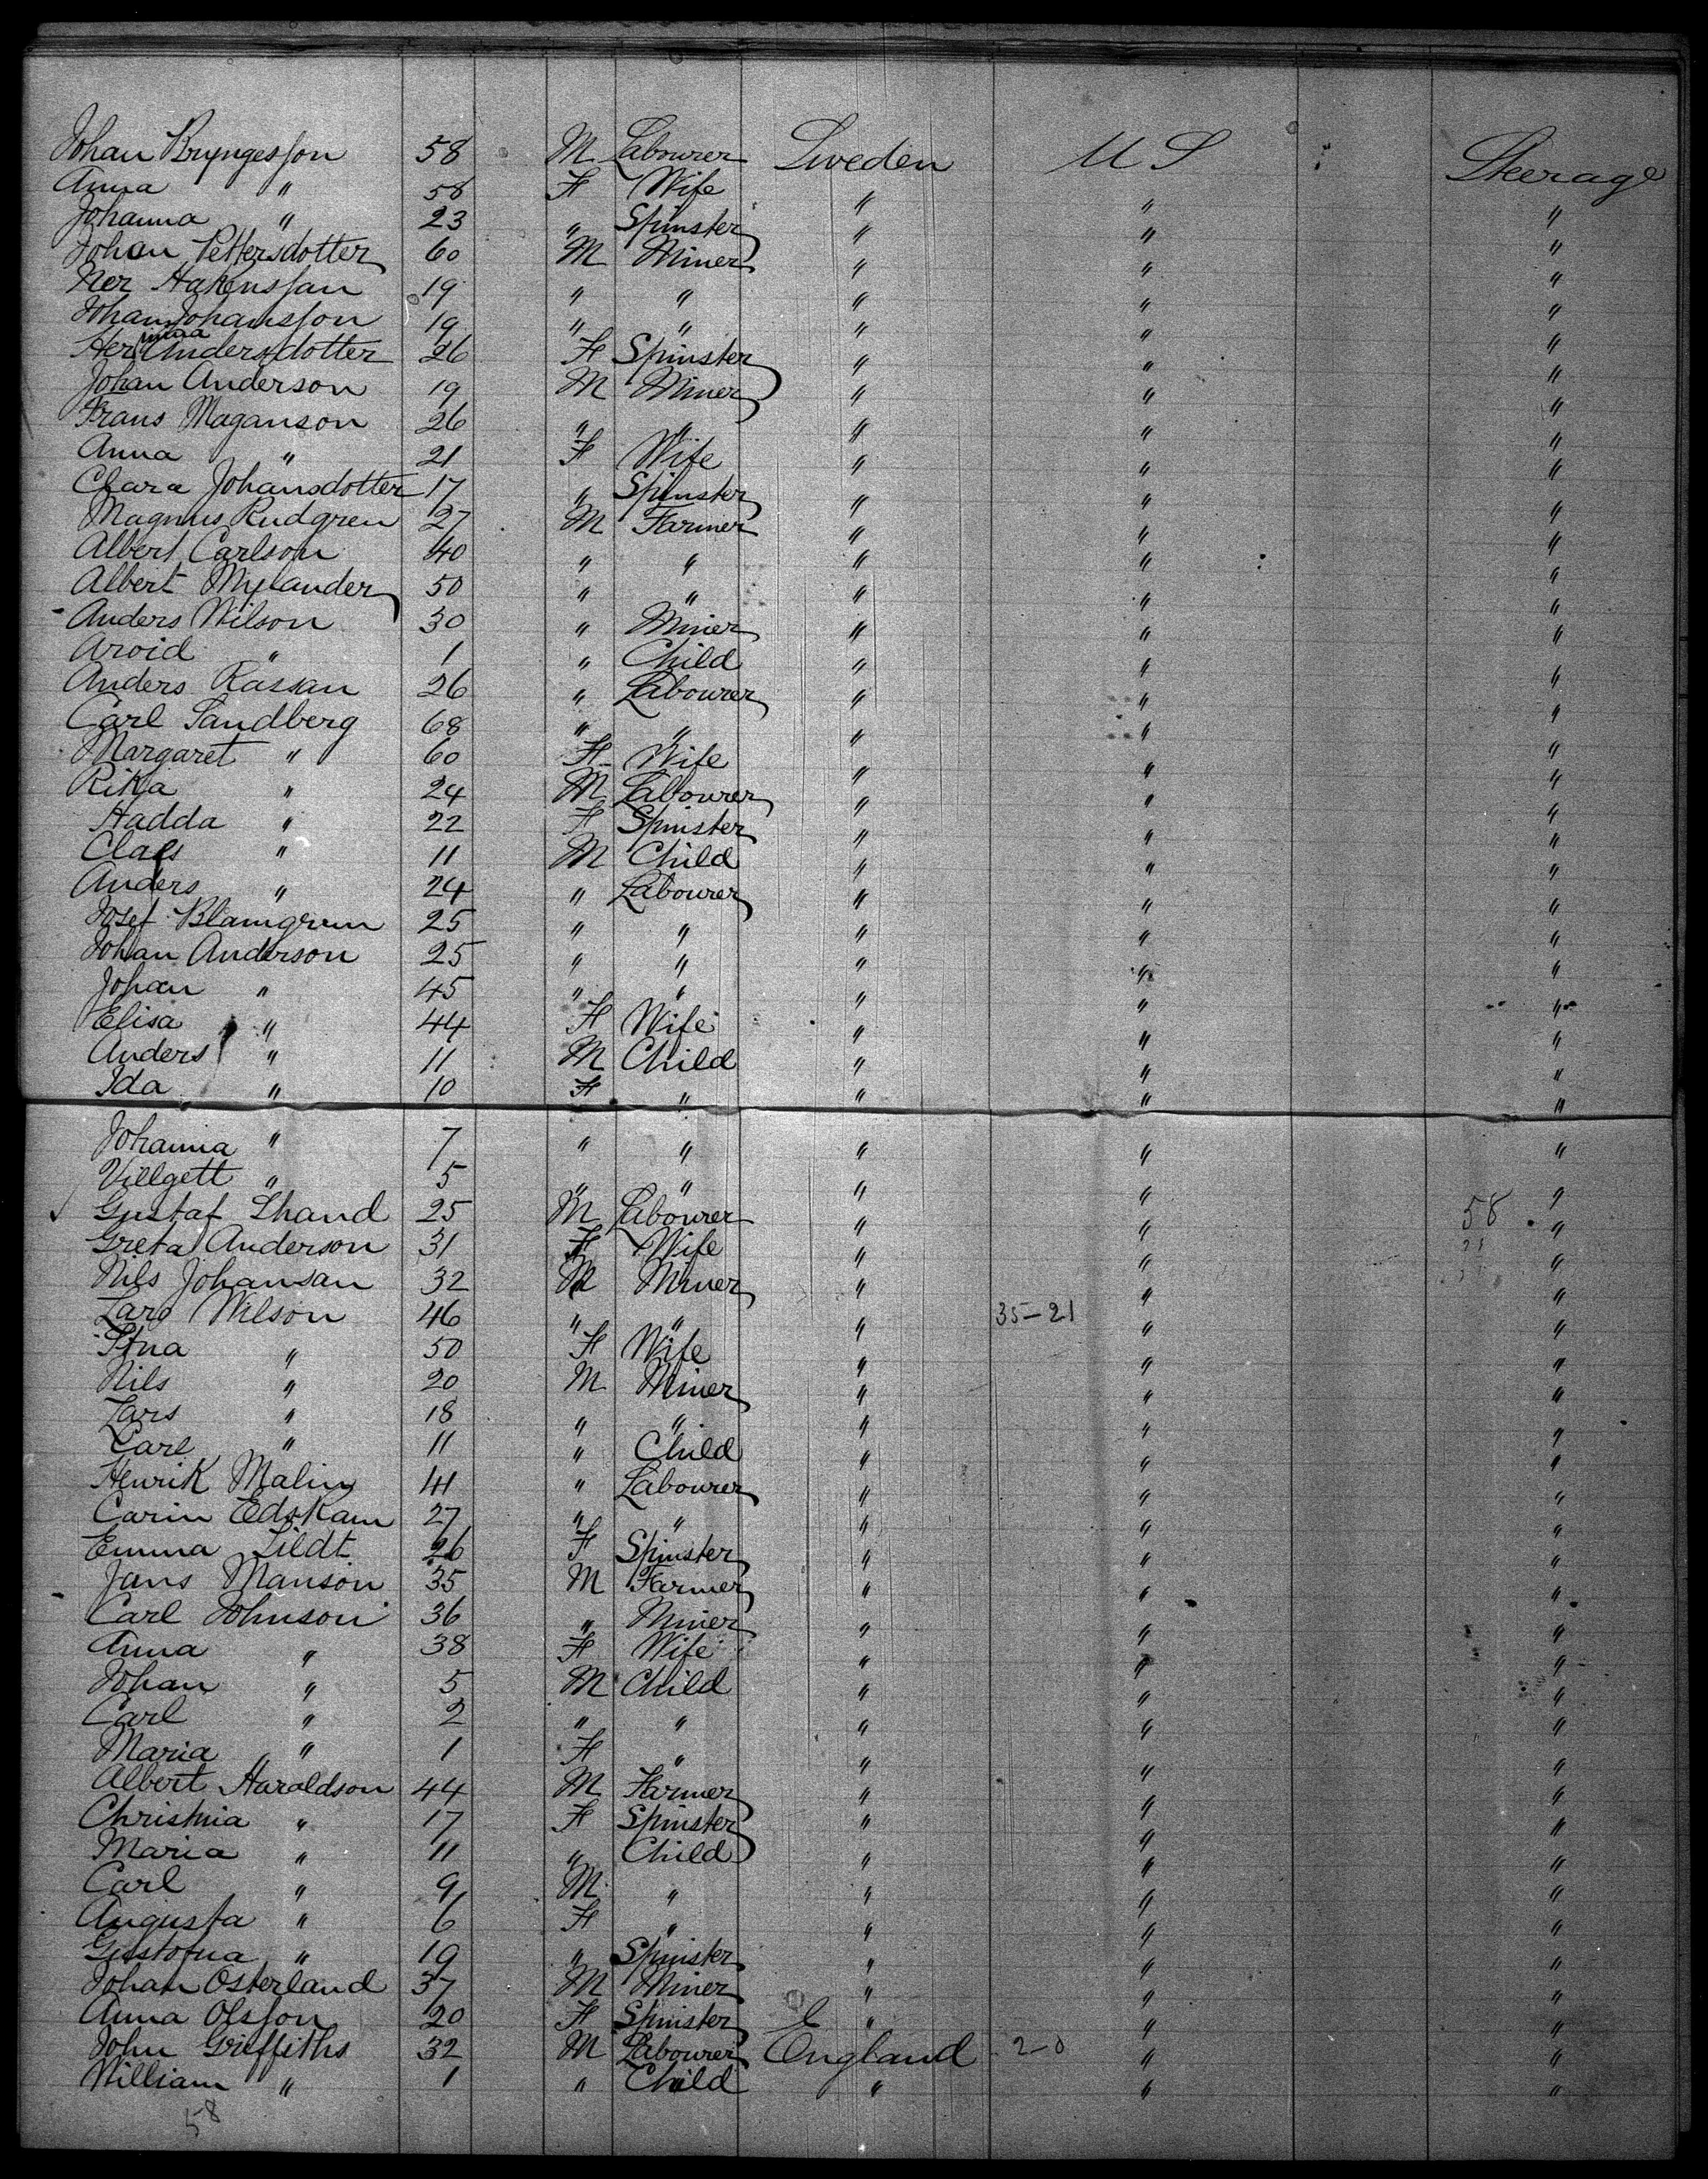 Johan Bryngesson 58 M Labourer Sweden U S Steerage
Anna " 58 F Wife " " "
Johanna " 23 " Spinster " " "
Johan Pettersdotter 60 M Miner " " "
Ner Hakensson 19 " " " " "
Johan Johansson 19 " " " " "
Herminaa Andersdotter 26 F Spinster " " "
Johan Anderson 19 M Miner " " "
Frans Maganson 26 " " " " "
Anna " 21 F Wife " " "
Clara Johansdotter 17 " Spinster " " "
Magnus Rudgren 27 M Farmer " " "
Albert Carlson 40 " " " " "
Albert Mylander 50 " " " " "
Anders Wilson 30 " Miner " " "
Aroid " 1 " Child " " "
Anders Kassan 26 " Labourer " " "
Carl Sandberg 68 " " " " "
Margaret " 60 F Wife " " "
Rika " 24 M Labourer " " "
Hadda " 22 F Spinster " " "
Claes " 11 M Child " " "
Anders " 24 " Labourer " " "
Josef Blamgrun 25 " " " " "
Johan Anderson 25 " " " " "
Johan " 45 " " " " "
Elisa " 44 F Wife " " "
Anders " 11 M Child " " "
Ida " 10 F " " " "
Johanna " 7 " " " " "
Villgett " 5 " " " " "
Gustaf Lhand 25 M Labourer " " 58 "
Greta Anderson 31 F Wife " " "
Nils Johansan 32 M Miner " " "
Lars Wilson 46 " " " 35-21 " "
Stna " 50 F Wife " " "
Nils " 20 M Miner " " "
Lars " 18 " " " " "
Carl " 11 " Child " " "
Henrik Malin 41 " Labourer " " "
Carin Edskam 27 " " " " "
Emma Lildt 26 F Spinster " " "
Jans Manson 35 M Farmer " " "
Carl Johnson 36 " Miner " " "
Anna " 38 F Wife " " "
Johan " 5 M Child " " "
Carl " 2 " " " " "
Maria " 1 F " " " "
Albert Haraldson 44 M Farmer " " "
Christnia " 17 F Spinster " " "
Maria " 11 " Child " " "
Carl " 9 M " " " "
Augusta " 6 F " " " "
Gustofna " 19 " Spinster " " "
Johan Osterland 37 M Miner " " "
Anna Olsson 20 F Spinster " " "
John Griffiths 32 M Labourer England 2-0 " "
William " 1 " Child " " "
58